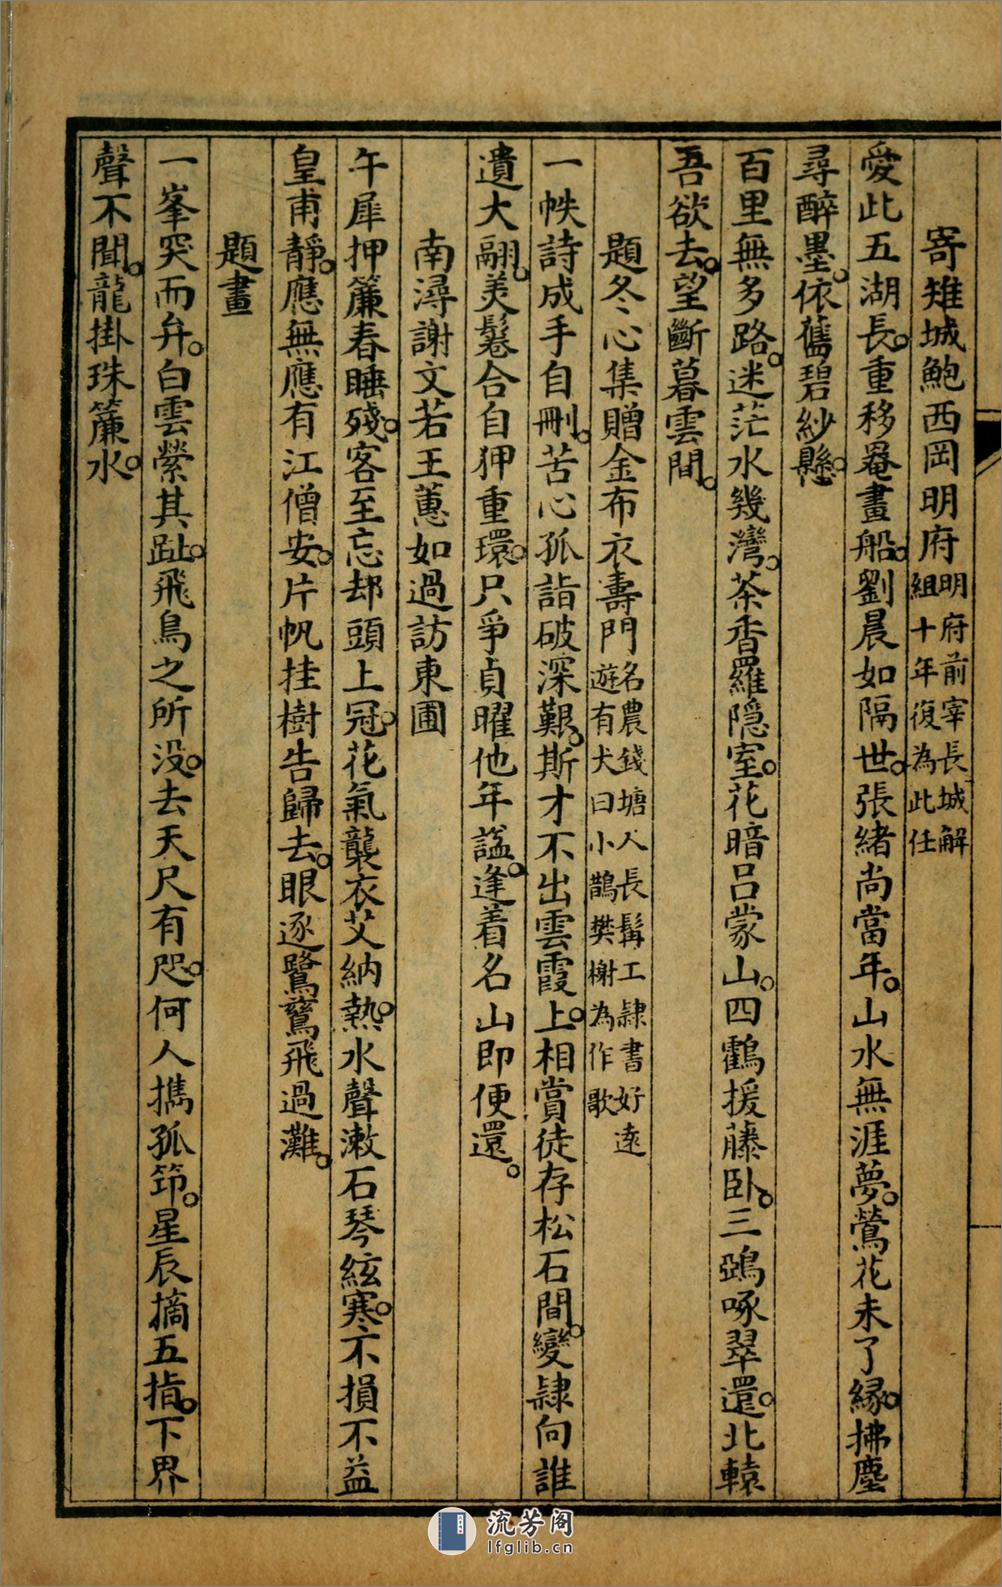 寄雉城鮑西岡明府明府前宰長城解組十年復為此任
愛此五湖長重移罨畫船劉晨如隔世張緒尚當年山水無涯夢鶯花未了緣拂塵
尋醉墨依舊碧紗懸
百里無多路迷茫水幾灣茶香羅隱室花暗呂蒙山四鸖援藤卧三鵶啄翠還北轅
吾欲去望斷暮雲間
題冬心集贈金布衣壽門名農錢塘人長髯工隸書好遠遊有犬曰小鵲樊榭為作歌
一帙詩成手自刪苦心孤詣破深艱斯才不出雲霞上相賞徒存松石間變隷向誰
遺大翮美鬈合自狎重環只爭貞曜他年諡逢着名山即便還
南潯謝文若王蕙如過訪東圃
午犀押簾春睡殘客至忘却頭上冠花氣襲衣艾納熱水聲漱石琴絃寒不損不益
皇甫靜應無應有江僧安片帆挂樹告歸去眼逐鷺鶿飛過灘
題畫
一峯突而弁白雲縈其趾飛鳥之所没去天尺有咫何人擕孤筇星辰摘五指下界
聲不聞龍掛珠簾水
流芳阁
lfglib.cn